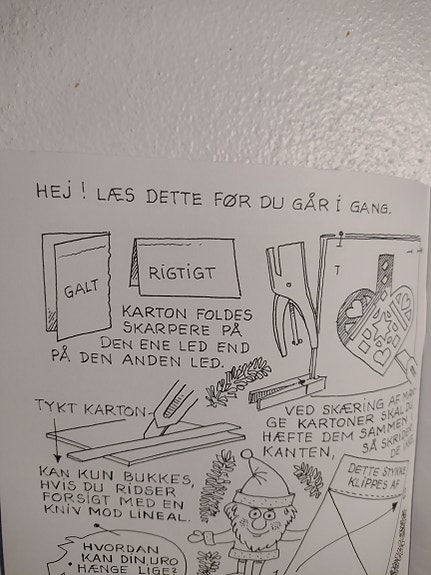 HEJ! LÆS DETTE FØR DU GÅR I GANG.
GALT
RIGTIGT
KARTON FOLDES
SKARPERE PÅ
DEN ENE LED END
PÅ DEN ANDEN LED.
T
TYKT KARTON
KAN KUN BUKKES,
HVIS DU RIDSER
FORSIGT MED EN
KNIV MOD LINEAL.
VED SKÆRING AF
GE KARTONER SKAL DU
HÆFTE DEM SAMMEN
KANTEN, SÅ
DE
DETTE STYKKE
KLIPPES AF
HVORDAN
KAN DIN URO
HÆNGE LIGE?